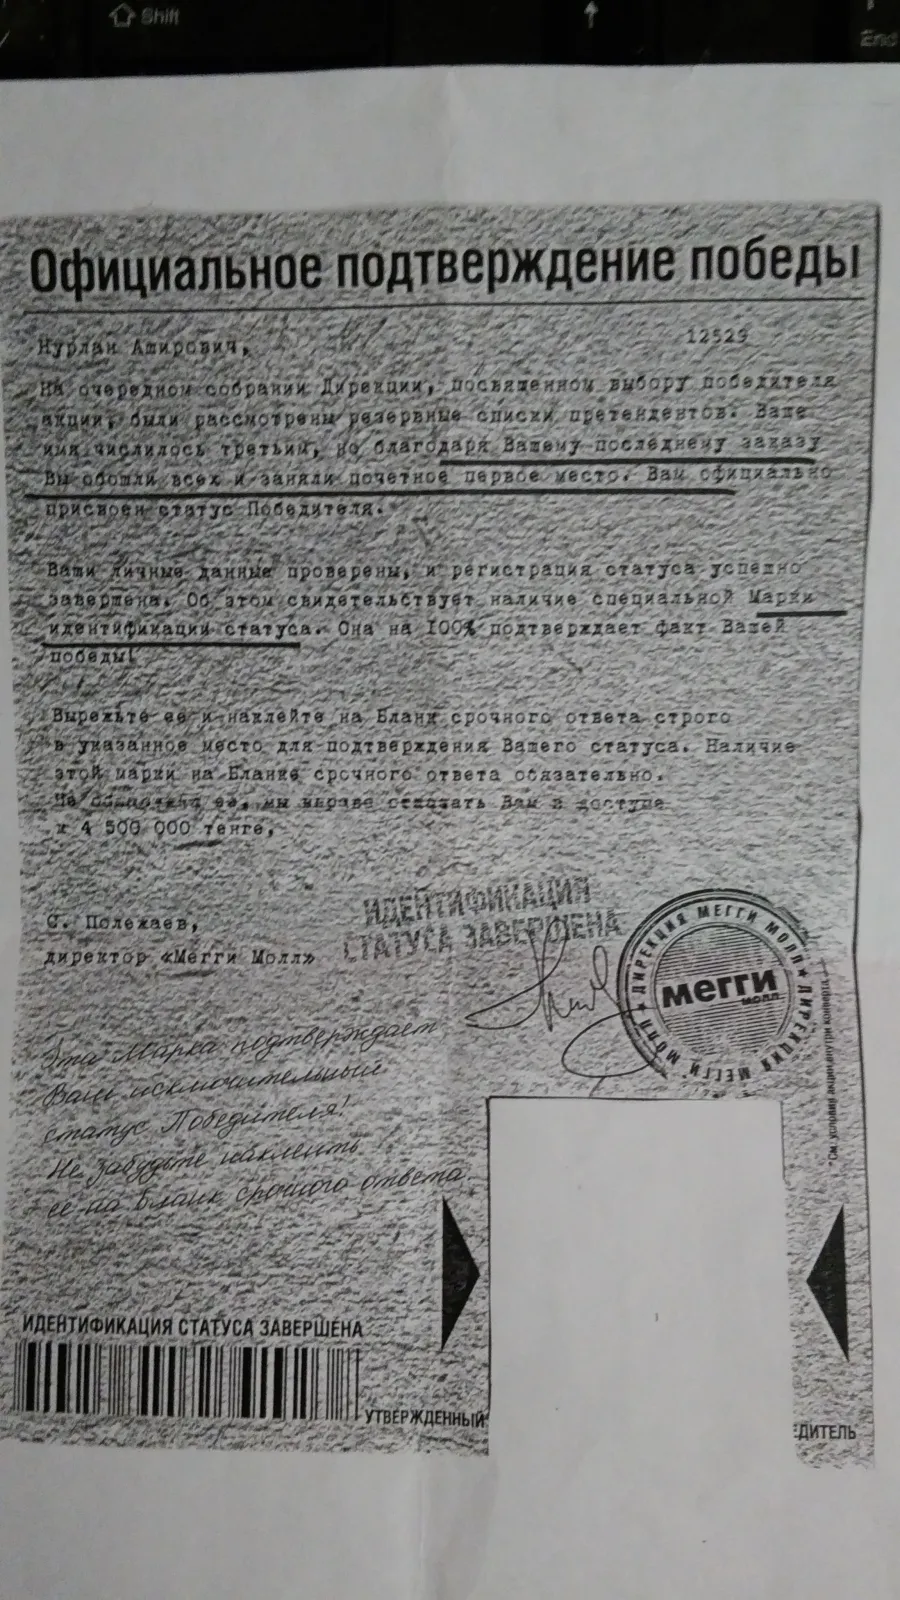 Shift
↑
End
Официальное подтверждение победы
Нурлан Аширович,
12529
На очередном собрании Дирекции, посвященном выбору победителя
акции, были рассмотрены резервные списки претендентов. Ваше
имя числилось третьим, но благодаря Вашему последнему заказу
Вы обошли всех и заняли почетное первое место. Вам официально
присвоен статус Победителя.
Ваши личные данные проверены, и регистрация статуса успешно
завершена. Об этом свидетельствует наличие специальной Марки
идентификации статуса. Она на 100% подтверждает факт Вашей
победы!
Вырежьте ее и наклейте на Бланк срочного ответа строго
в указанное место для подтверждения Вашего статуса. Наличие
этой марки на Бланке срочного ответа обязательно.
Не обнаружив ее, мы вправе отказать Вам в доступе
к 4 500 000 тенге.
С. Полежаев,
директор «Мегги Молл»
ИДЕНТИФИКАЦИЯ
СТАТУСА ЗАВЕРШЕНА
ДИРЕКЦИЯ МЕГГИ МОЛЛ ★ ДИРЕКЦИЯ МЕГГИ МОЛЛ ★
мегги
молл
*См. условия акции внутри конверта
Эта Марка подтверждает
Ваш исключительный
статус Победителя!
Не забудьте наклеить
ее на бланк срочного ответа.
ИДЕНТИФИКАЦИЯ СТАТУСА ЗАВЕРШЕНА
УТВЕРЖДЕННЫЙ
ЕДИТЕЛЬ